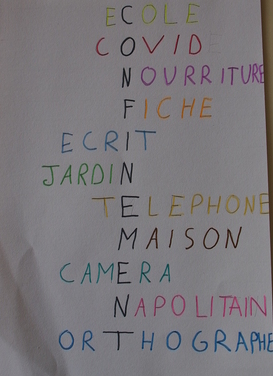 ECOLE
COVID
NOURRITURE
FICHE
ECRIT
JARDIN
TELEPHONE
MAISON
CAMERA
NAPOLITAIN
ORTHOGRAPHE